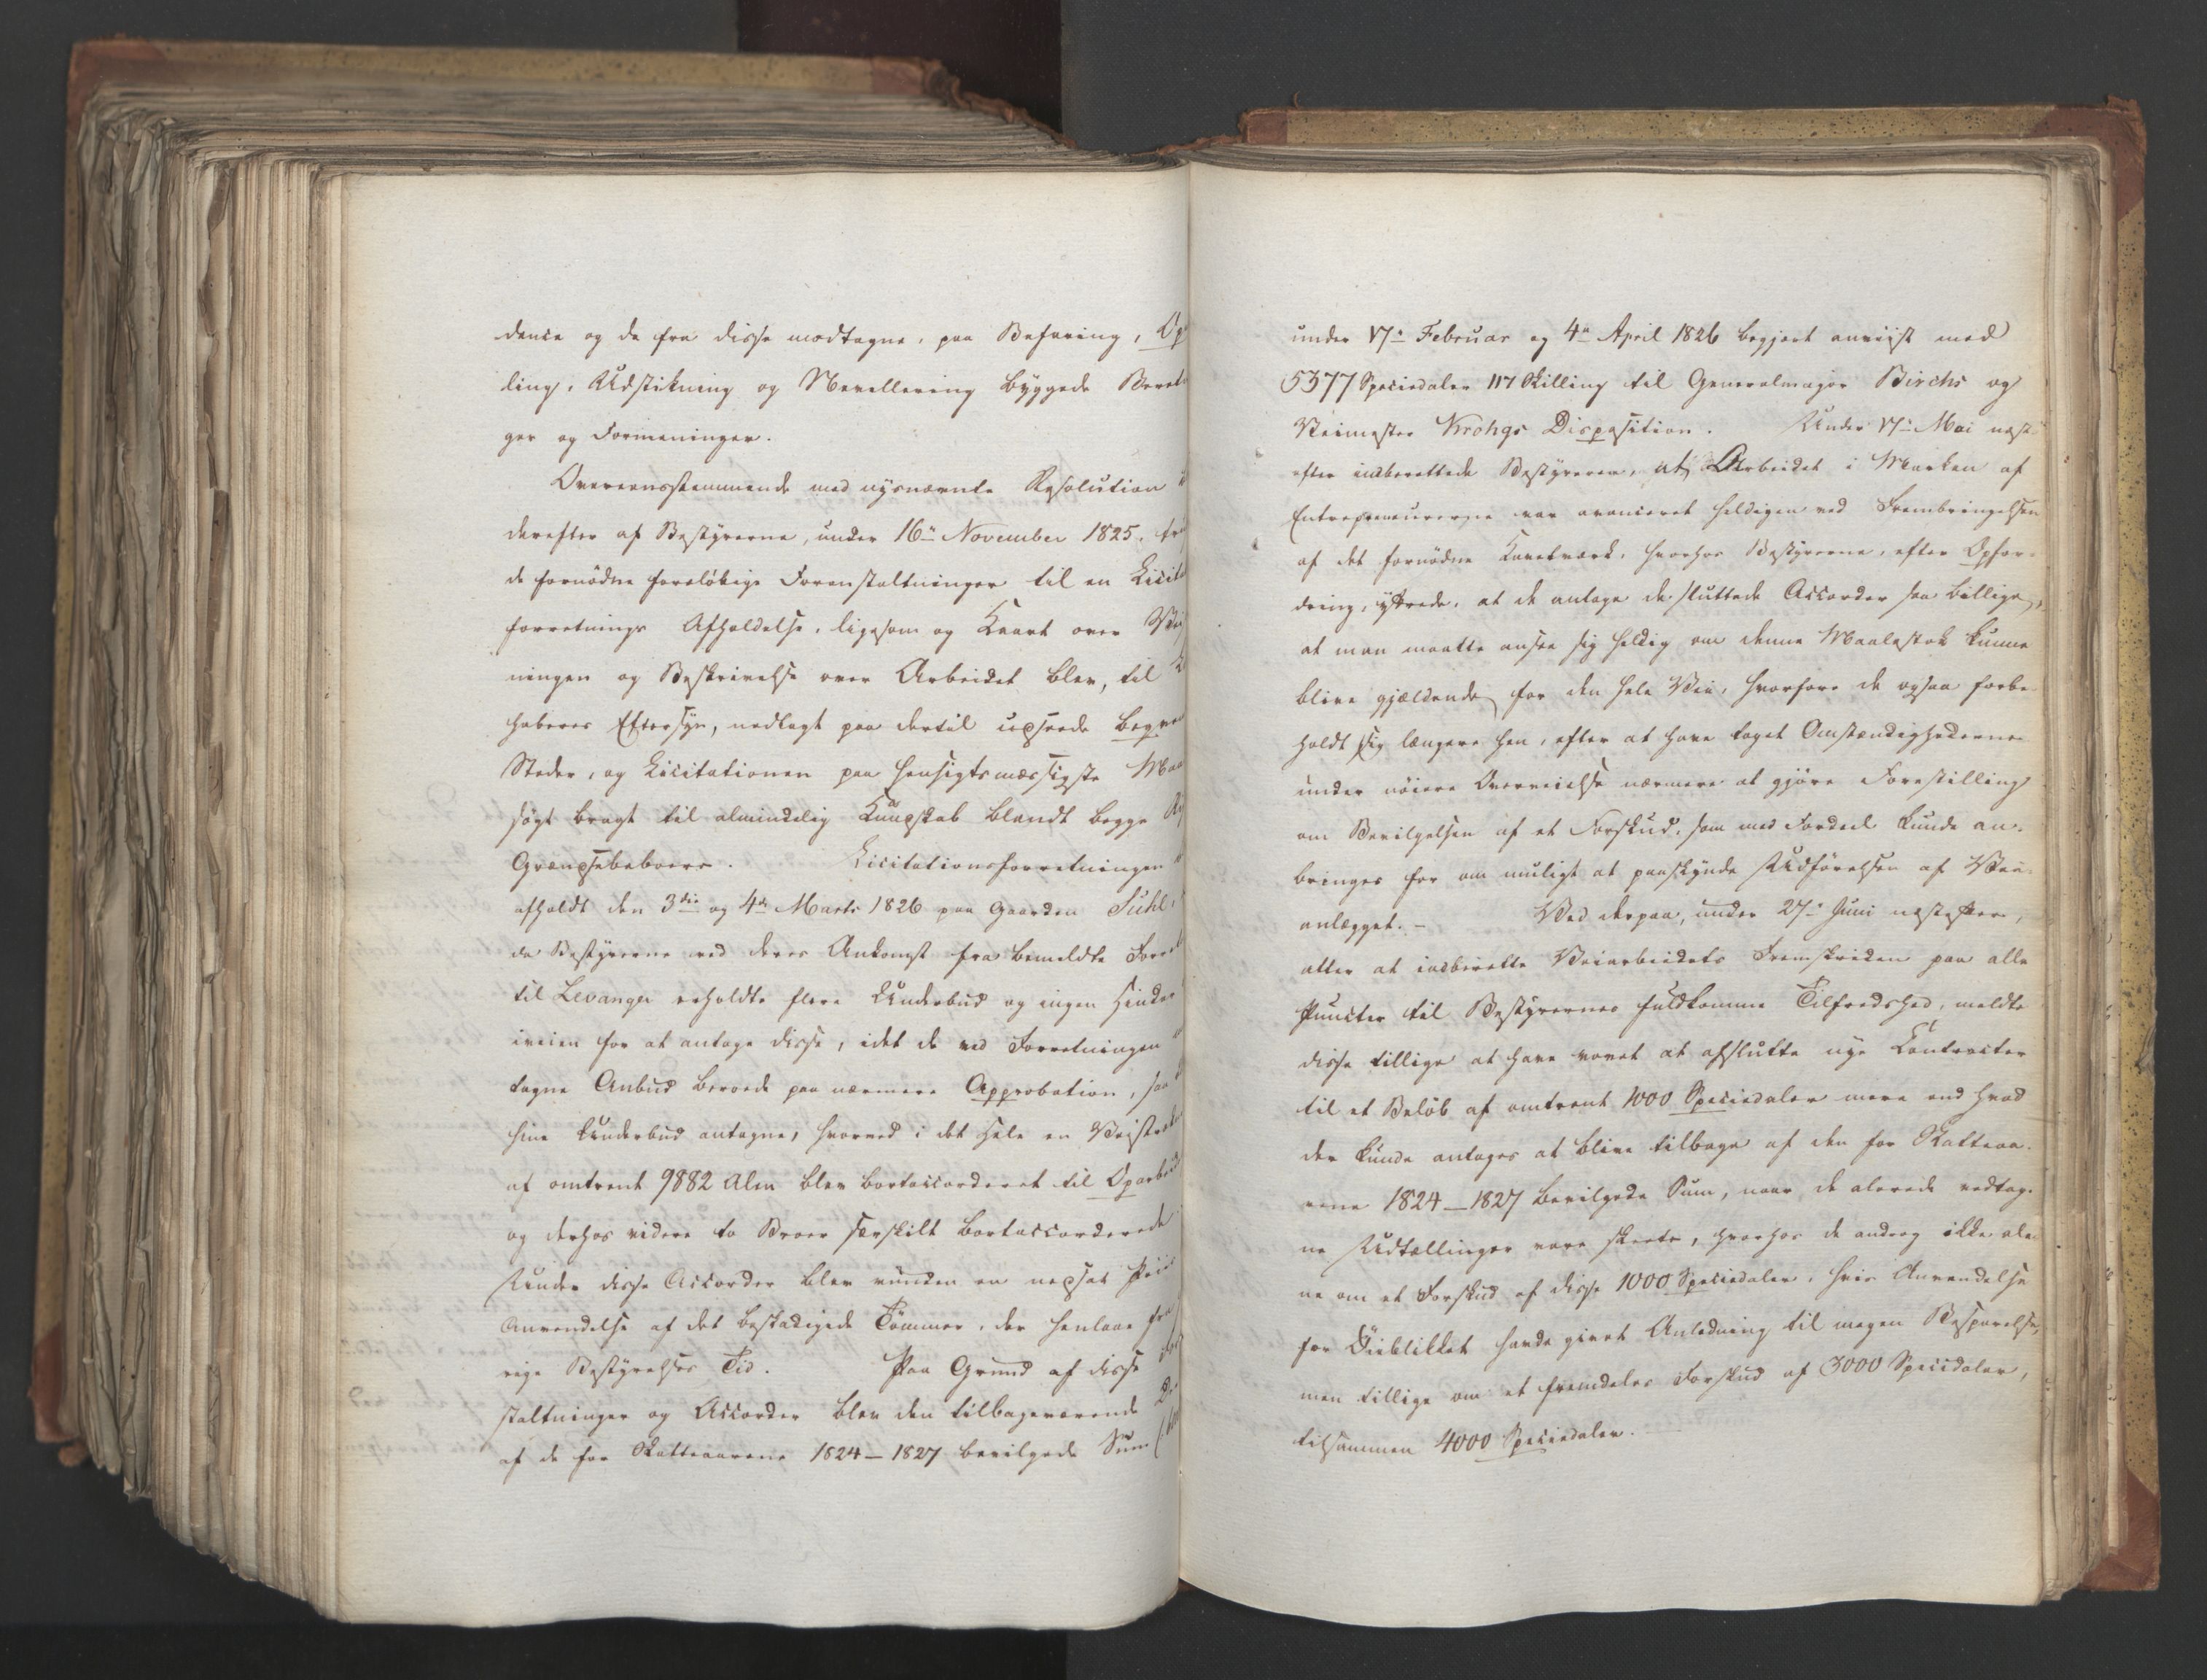 dence og de fra disse modtagne, paa Befaring, Op
ling, Udstikning og Nevellering byggede Beret
ger og Formeninger.
Overeensstemmende med nysnævnte Resolution
derefter af Bestyrerne, under 16de November 1825,
de fornødne foreløbige Foranstaltninger til en Licita
forretnings Afholdelse, ligesom og Kaart over Vei
ningen og Beskrivelse over Arbeidet blev, til
haberes Eftersyn, nedlagt paa dertil udseede beqve
Steder, og Licitationen paa hensigtsmæssigste Maa
søgt bragt til almindelig Kundskab blandt begge Ri
Grændsebeboere. Licitationsforretningen
afholdt den 3die og 4de Marts 1826 paa Gaarden Suhl,
da Bestyrerne ved deres Ankomst fra bemeldte Forret
til Levanger erholdte flere Underbud og ingen Hinder
iveien for at antage disse, idet de ved Forretningen
tagne Anbud beroede paa nærmere Approbation, saa
hine Underbud antagne, hvorved i det Hele en Veistræk
af omtrent 9882 Alen blev bortaccorderet til Oparbeid
og derhos videre to Broer særskilt bortaccorderede
Under disse Accorder blev vunden en nedsat Priis
Anvendelse af det beskadigede Tømmer, der henlaae fra
rige Bestyrelses Tid. Paa Grund af disse
staltninger og Accorder blev den tilbageværende De
af de for Skatteaarene 1824–1827 bevilgede Sum
under 17de Februar og 4de April 1826 begjert anviist med
5377 Speciedaler 117 Skilling til Generalmajor Birchs og
Veimester Krohgs Disposition. Under 17de Mai næst
efter indberettede Bestyrerne, at Arbeidet i Marken af
Entrepreneurerne var avanceret heldigen ved Frembringelsen
af det fornødne Kavelværk, hvorhos Bestyrerne, efter Opfor-
dring, yttrede, at de antage de sluttede Accorder saa billige,
at man maatte ansee sig heldig om denne Maalestok kunne
blive gjældende for den hele Vei, hvorfore de ogsaa forbe-
holdt sig længere hen, efter at have taget Omstændighederne
under nøiere Overveielse nærmere at gjøre Forestilling
om Bevilgelsen af et Forskud, som med Fordeel kunde an-
bringes for om muligt at paaskynde Udførelsen af Vei-
anlægget. – Ved derpaa, under 27de Juni næstefter,
atter at indberette Veiarbeidets Fremskriden paa alle
Puncter til Bestyrernes fuldkomne Tilfredshed, meldte
disse tillige at have vovet at afslutte nye Contracter
til et Beløb af omtrent 1000 Speciedaler mere end hvad
der kunde antages at blive tilbage af den for Skatteaa-
rene 1824–1827 bevilgede Sum, naar de alerede vedtag-
ne Udtællinger vare skeete, hvorhos de androg ikke ale-
ne om et Forskud af disse 1000 Speciedaler, hvis Anvendelse
for Øieblikket havde givet Anledning til megen Besparelse,
men tillige om et fremdeles Forskud af 3000 Speciedaler,
tilsammen 4000 Speciedaler.